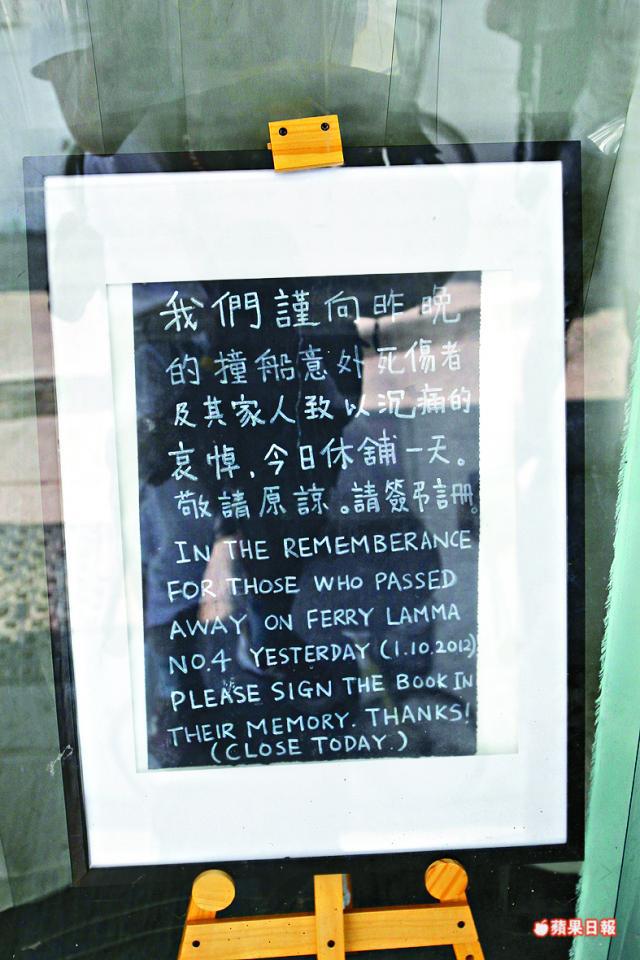 我們謹向昨晚
的撞船意外死傷者
及其家人致以沉痛的
哀悼，今日休舖一天。
敬請原諒。請簽弔註冊。
IN THE REMEMBERANCE
FOR THOSE WHO PASSED
AWAY ON FERRY LAMMA
NO.4 YESTERDAY (1.10.2012)
PLEASE SIGN THE BOOK IN
THEIR MEMORY. THANKS!
(CLOSE TODAY.)
蘋果日報